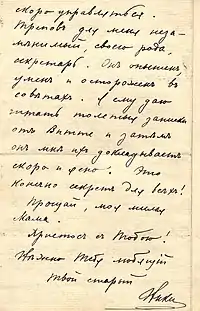 скоро управляться.
Треповъ для меня неза-
мѣнимый, своего рода,
секретарь. Онъ опытенъ,
уменъ и остороженъ въ
совѣтахъ. Я ему даю
читать толстыя записки
отъ Витте и затѣмъ
онъ мнѣ ихъ докладываетъ
скоро и ясно. Это
конечно секретъ для всѣхъ!
Прощай, моя милая
Мама.
Христосъ съ Тобою!
Нѣжно Тебя любящій
Твой старый
Ники